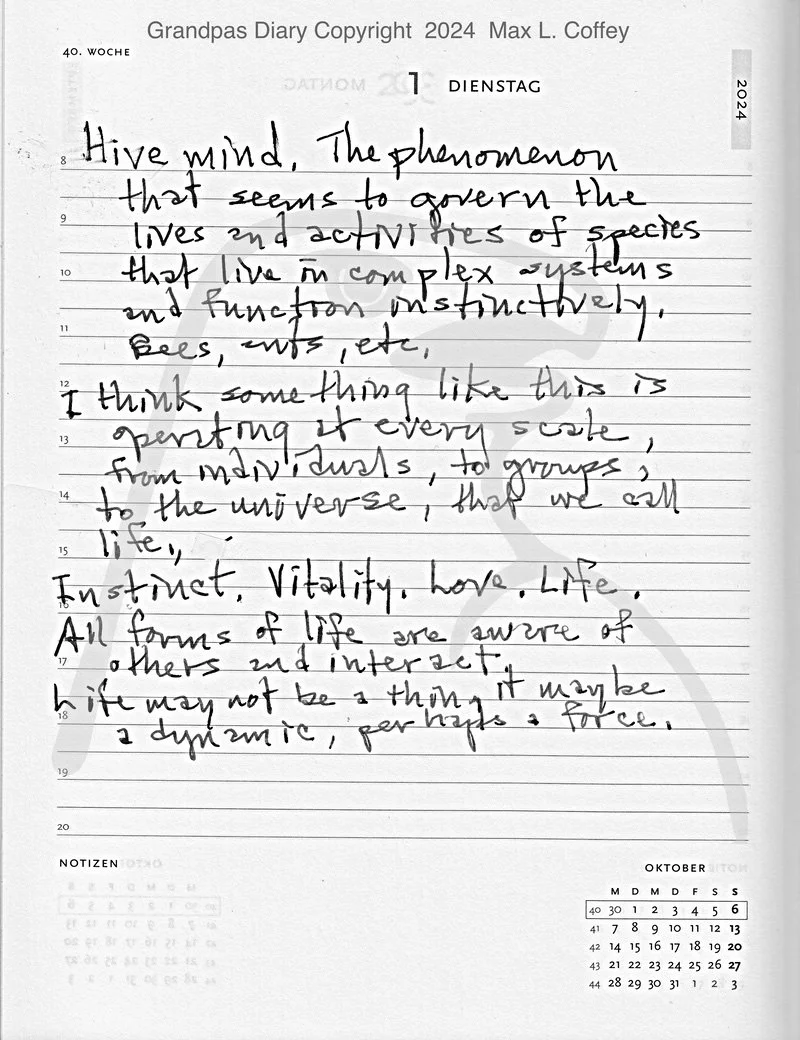 Grandpas Diary Copyright 2024 Max L. Coffey
40. WOCHE
1 DIENSTAG
2024
8 Hive mind, The phenomenon
that seems to govern the
9 lives and activities of species
10 that live in complex systems
and function instinctively.
11 Bees, ants, etc,
12 I think something like this is
13 operating at every scale,
from individuals, to groups,
14 to the universe, that we call
15 life,
16 Instinct. Vitality. Love. Life.
All forms of life are aware of
17 others and interact.
Life may not be a thing it may be
18 a dynamic, perhaps a force.
19
20
NOTIZEN
OKTOBER
M D M D F S S
40 30 1 2 3 4 5 6
41 7 8 9 10 11 12 13
42 14 15 16 17 18 19 20
43 21 22 23 24 25 26 27
44 28 29 30 31 1 2 3